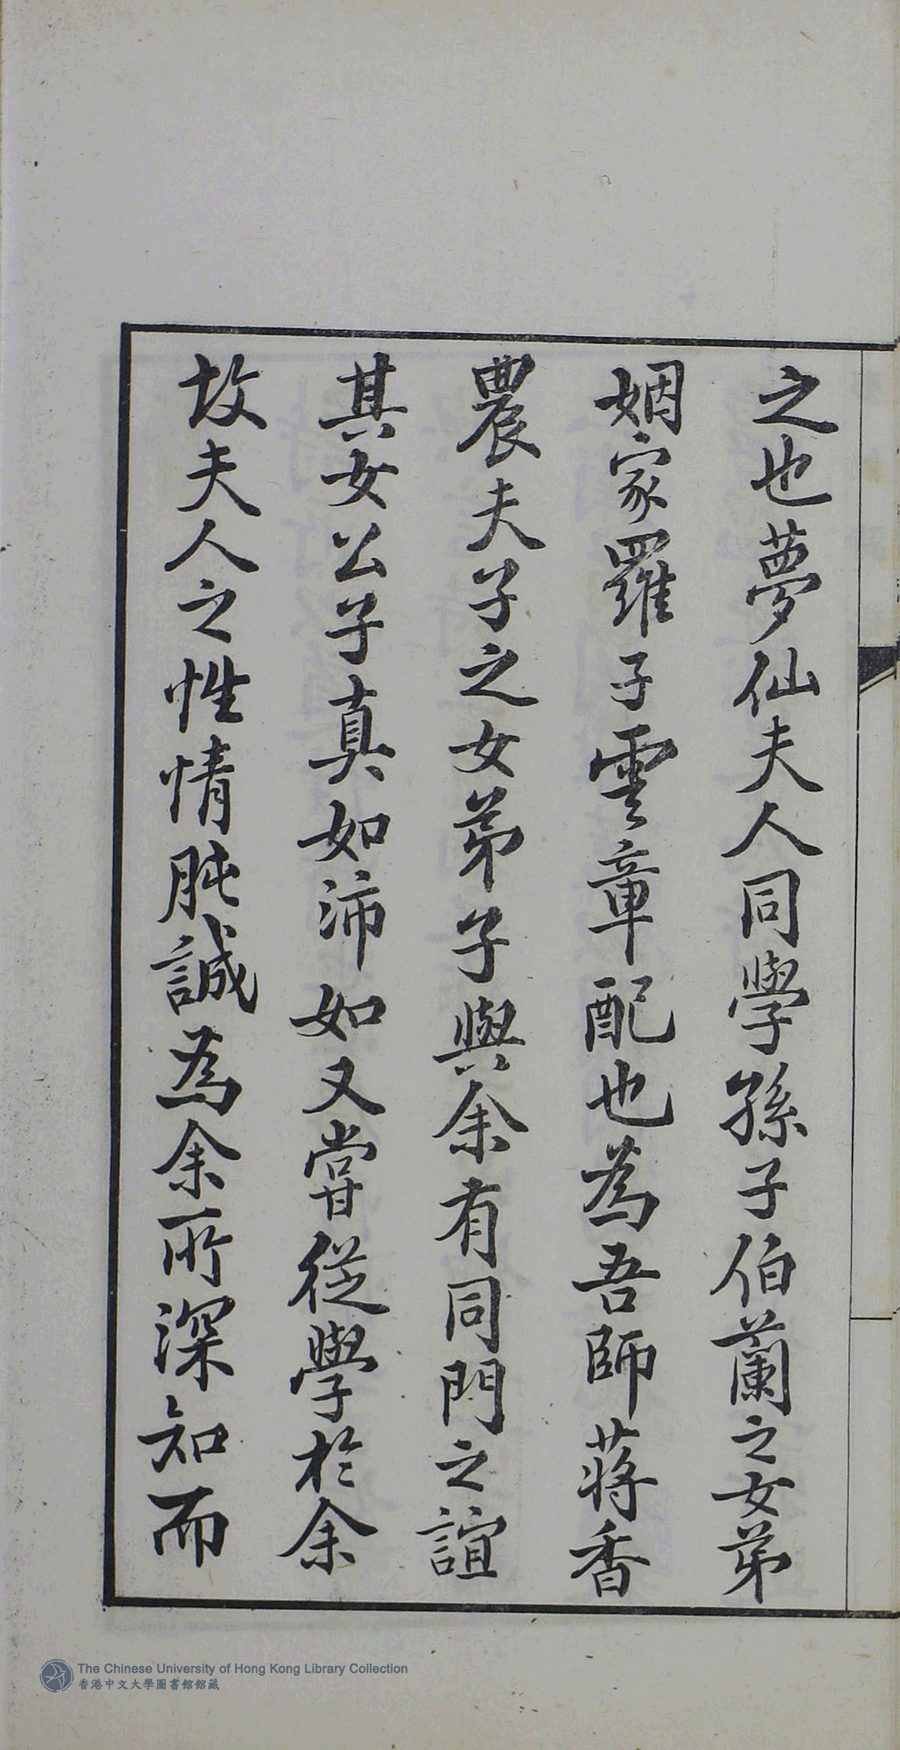 之也夢仙夫人同學孫子伯蘭之女弟
姻家羅子雲章配也為吾師蔣香
農夫子之女弟子與余有同門之誼
其女公子真如沛如又嘗從學於余
故夫人之性情肫誠為余所深知而
The Chinese University of Hong Kong Library Collection
香港中文大學圖書館館藏